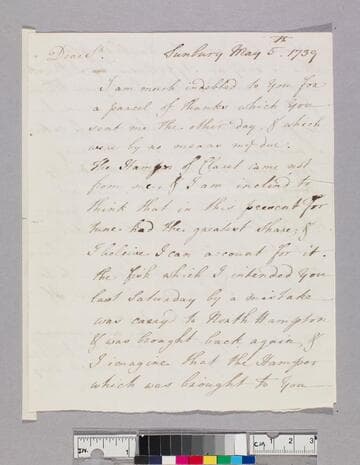 Dear Sr. Sunbury May 5th. 1739
I am much indebted to You for
a parcel of thanks which you
sent me the other day, & which
were by no means my due.
The Hamper of Claret came not
from me, & I am inclin'd to
think that in this present For
tune had the greatest Share; &
I believe I can account for it.
the fish which I intended You
last Saturday by a mistake
was caryd to North Hampton
& was brought back again, &
I imagine that the Hamper
which was brought to You
IN. 1 CM 1 2 3